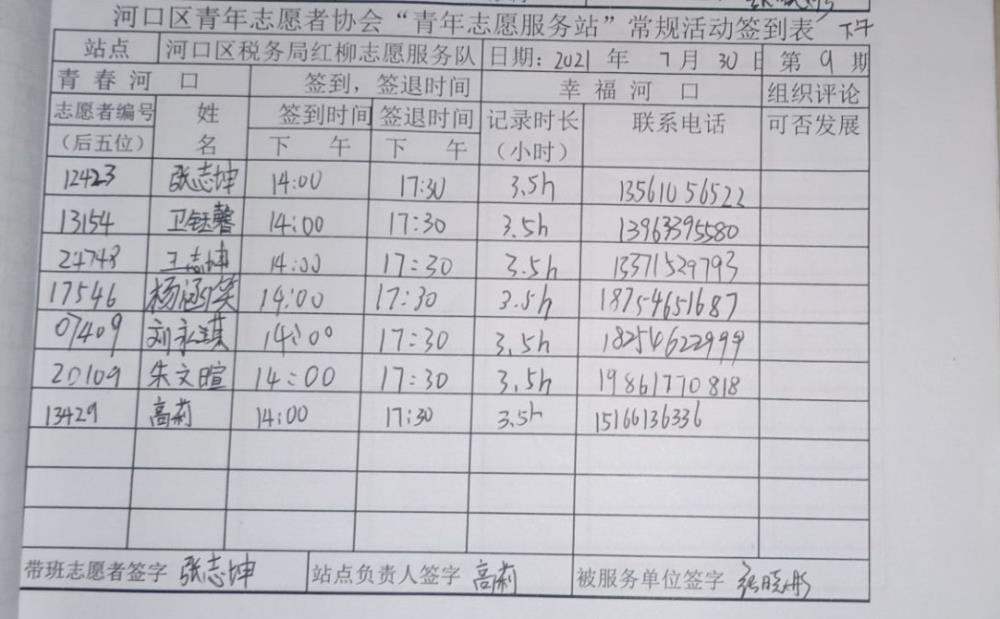 河口区青年志愿者协会“青年志愿服务站”常规活动签到表 下午
站点 河口区税务局红柳志愿服务队 日期：2021 年 7 月 30 日 第 9 期
青春河口 签到，签退时间 幸福河口 组织评论
志愿者编号 姓 签到时间 签退时间 记录时长 联系电话 可否发展
（后五位） 名 下午 下午 （小时）
12423 张志坤 14:00 17:30 3.5h 13561056522
13154 卫钰馨 14:00 17:30 3.5h 13963395580
24748 王志坤 14:00 17:30 3.5h 13371529793
17546 杨涵笑 14:00 17:30 3.5h 18754651687
07409 刘永琪 14:00 17:30 3.5h 18254622999
20109 朱文暄 14:00 17:30 3.5h 19861770818
13429 高莉 14:00 17:30 3.5h 15166136336
带班志愿者签字 张志坤 站点负责人签字 高莉 被服务单位签字 张晓彤